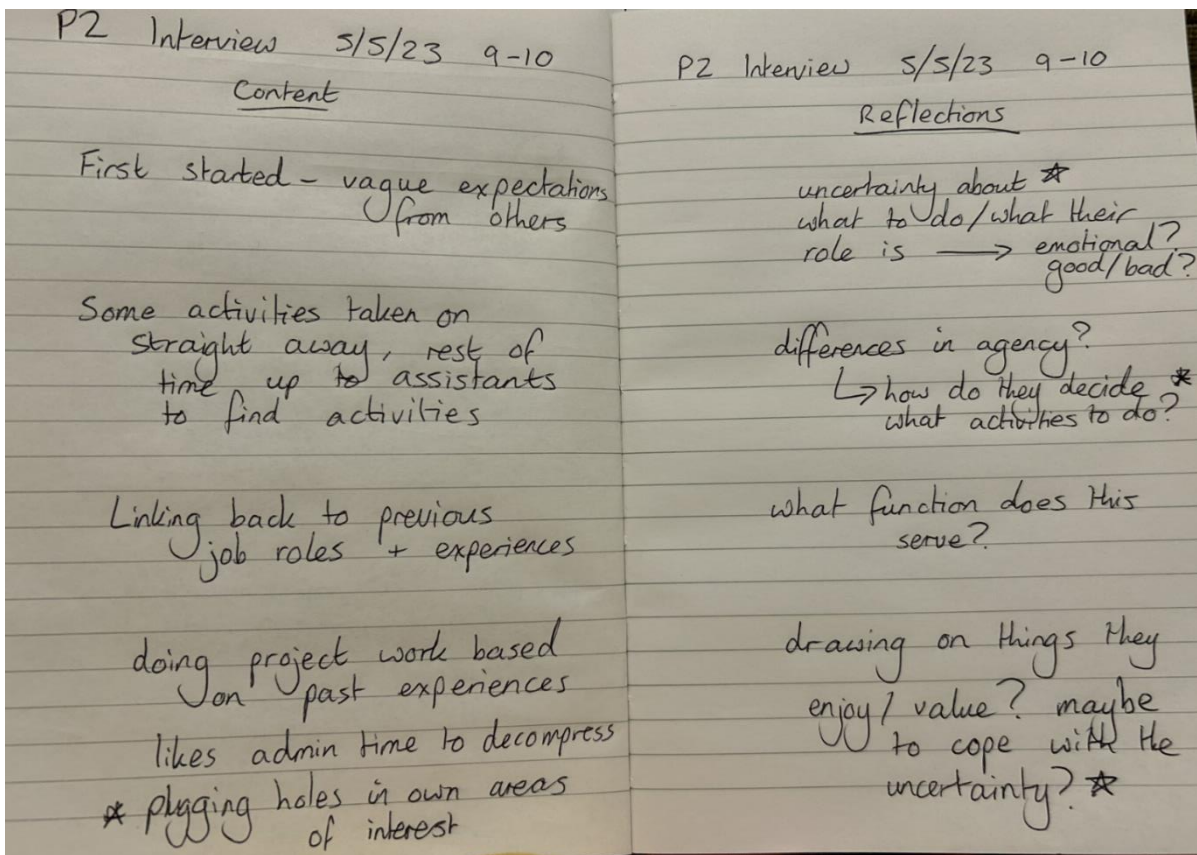 P2 Interview 5/5/23 9-10
Content
First started - vague expectations
from others
Some activities taken on
straight away, rest of
time up to assistants
to find activities
Linking back to previous
job roles + experiences
doing project work based
on past experiences
likes admin time to decompress
☆ plugging holes in own areas
of interest
P2 Interview 5/5/23 9-10
Reflections
uncertainty about ☆
what to do/what their
role is → emotional?
good/bad?
differences in agency?
↳ how do they decide ☆
what activities to do?
what function does this
serve?
drawing on things they
enjoy/value? maybe
to cope with the
uncertainty? ☆